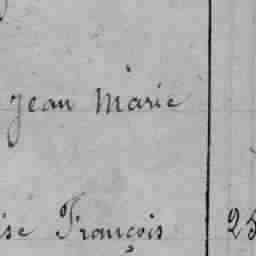 Jean Marie
ise François 25